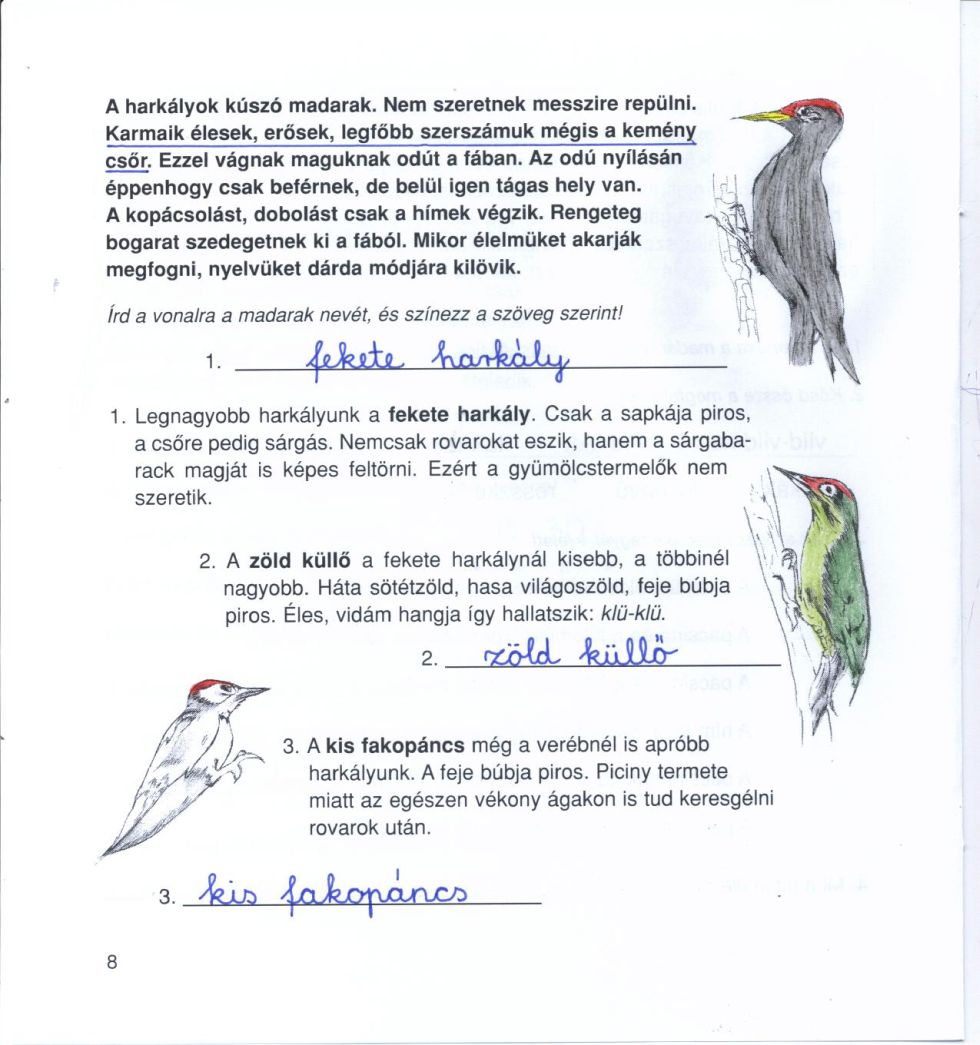 A harkályok kúszó madarak. Nem szeretnek messzire repülni.
Karmaik élesek, erősek, legfőbb szerszámuk mégis a kemény
csőr. Ezzel vágnak maguknak odút a fában. Az odú nyílásán
éppenhogy csak beférnek, de belül igen tágas hely van.
A kopácsolást, dobolást csak a hímek végzik. Rengeteg
bogarat szedegetnek ki a fából. Mikor élelmüket akarják
megfogni, nyelvüket dárda módjára kilövik.
Írd a vonalra a madarak nevét, és színezz a szöveg szerint!
1. fekete harkály
1. Legnagyobb harkályunk a fekete harkály. Csak a sapkája piros,
a csőre pedig sárgás. Nemcsak rovarokat eszik, hanem a sárgaba-
rack magját is képes feltörni. Ezért a gyümölcstermelők nem
szeretik.
2. A zöld küllő a fekete harkálynál kisebb, a többinél
nagyobb. Háta sötétzöld, hasa világoszöld, feje búbja
piros. Éles, vidám hangja így hallatszik: klü-klü.
2. zöld küllő
3. A kis fakopáncs még a verébnél is apróbb
harkályunk. A feje búbja piros. Piciny termete
miatt az egészen vékony ágakon is tud keresgélni
rovarok után.
3. kis fakopáncs
8